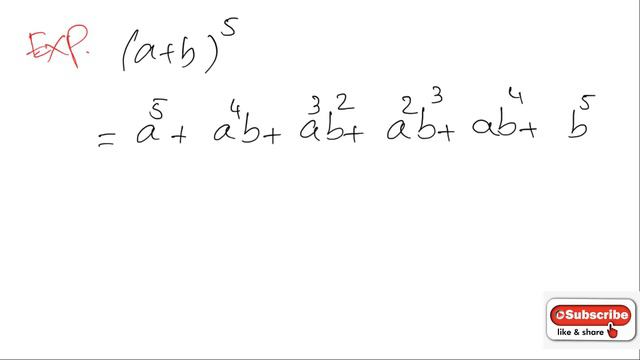 Exp. (a+b)⁵
= a⁵ + a⁴b + a³b² + a²b³ + ab⁴ + b⁵
Subscribe
like & share